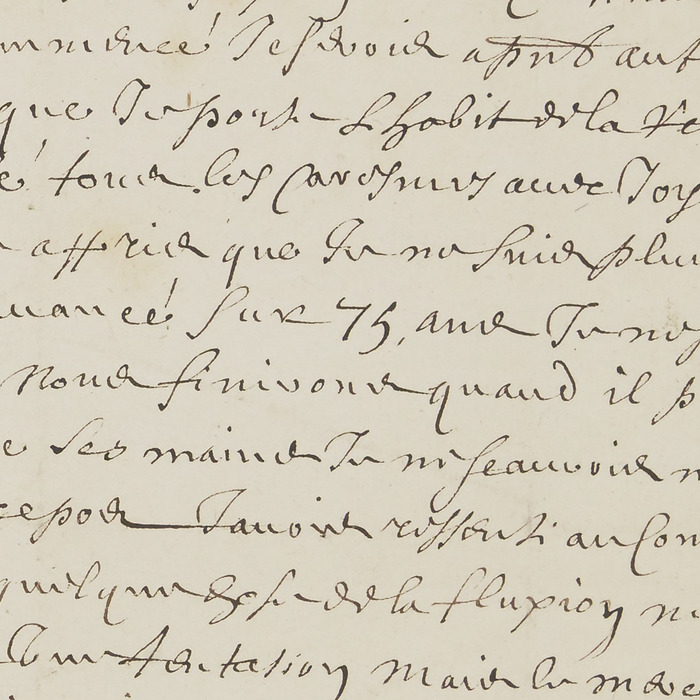 mmencé Je servois apnt aut
que Je porte L habit de la Re
é tous les Caresmes avec Joy
apris que Je ne suis plus
uancé sur 75, ans Je ne
Nous finirons quand il p
e ses mains Je ne scaurois n
repos Javois ressenti au Com
quelque chose de la fluxion
tentation mais le mede